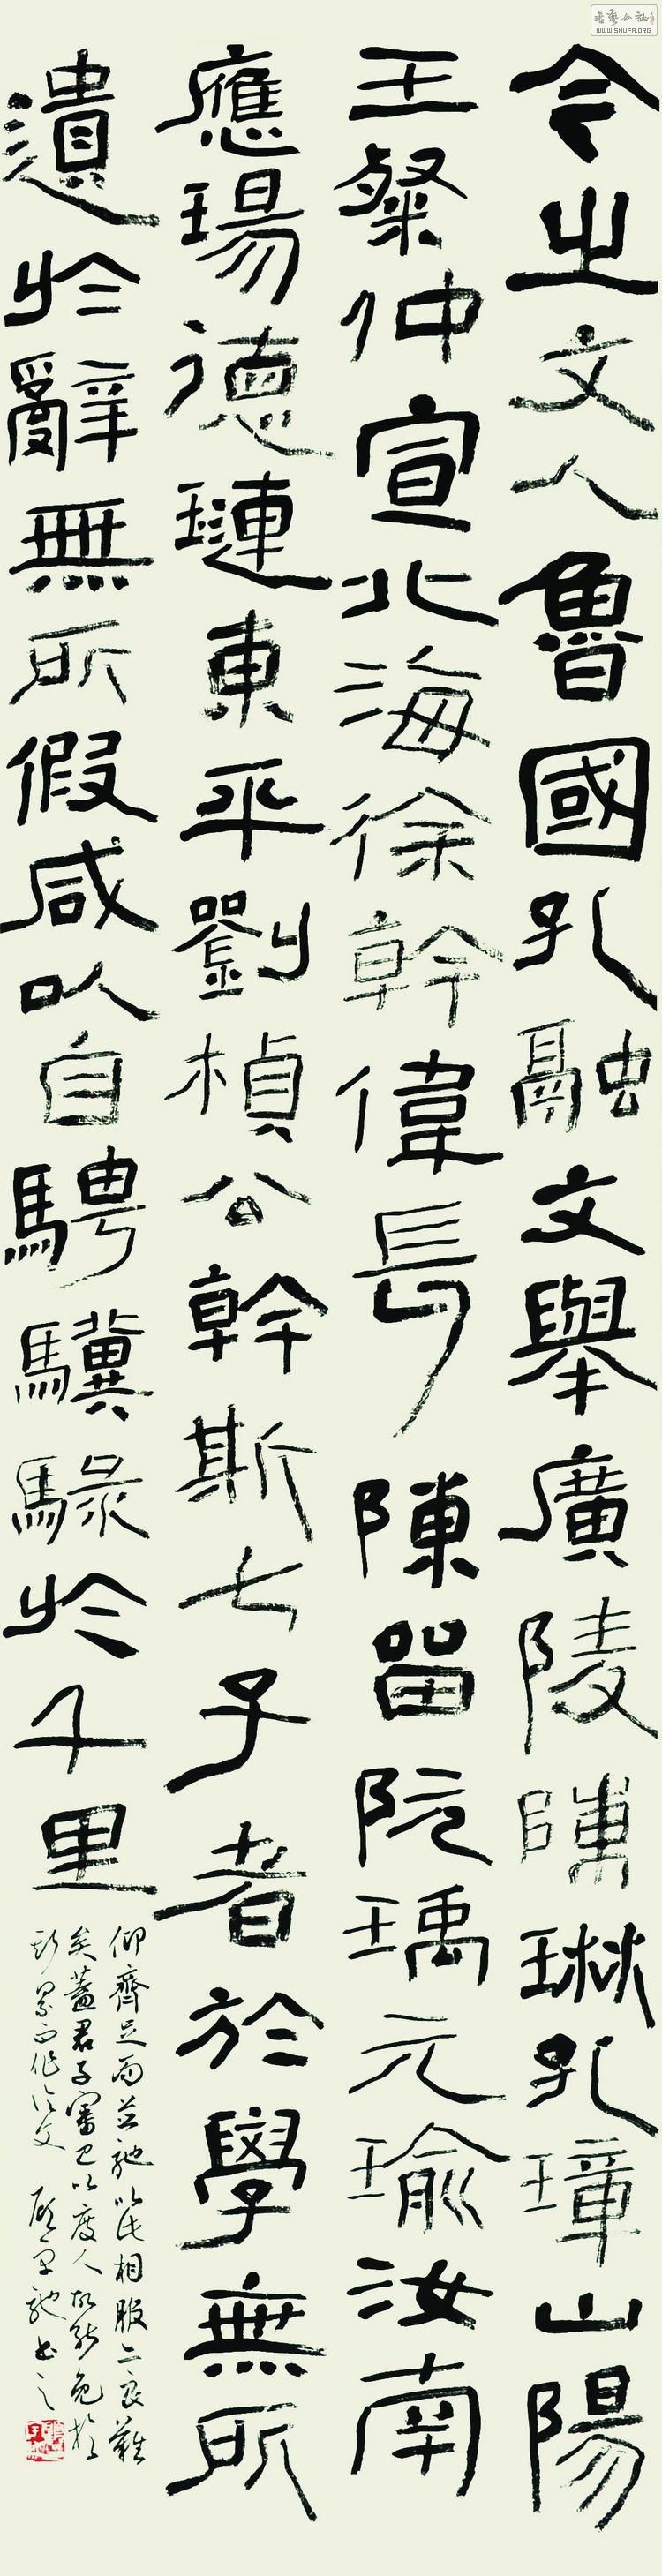 WWW.SHUFA.ORG
今之文人魯國孔融文舉廣陵陳琳孔璋山陽
王粲仲宣北海徐幹偉長陳留阮瑀元瑜汝南
應瑒德璉東平劉楨公幹斯七子者於學無所
遺於辭無所假咸以自騁驥騄於千里
仰齊足而並馳以此相服亦良難
矣蓋君子審己以度人故能免於
斯累而作論文 書之